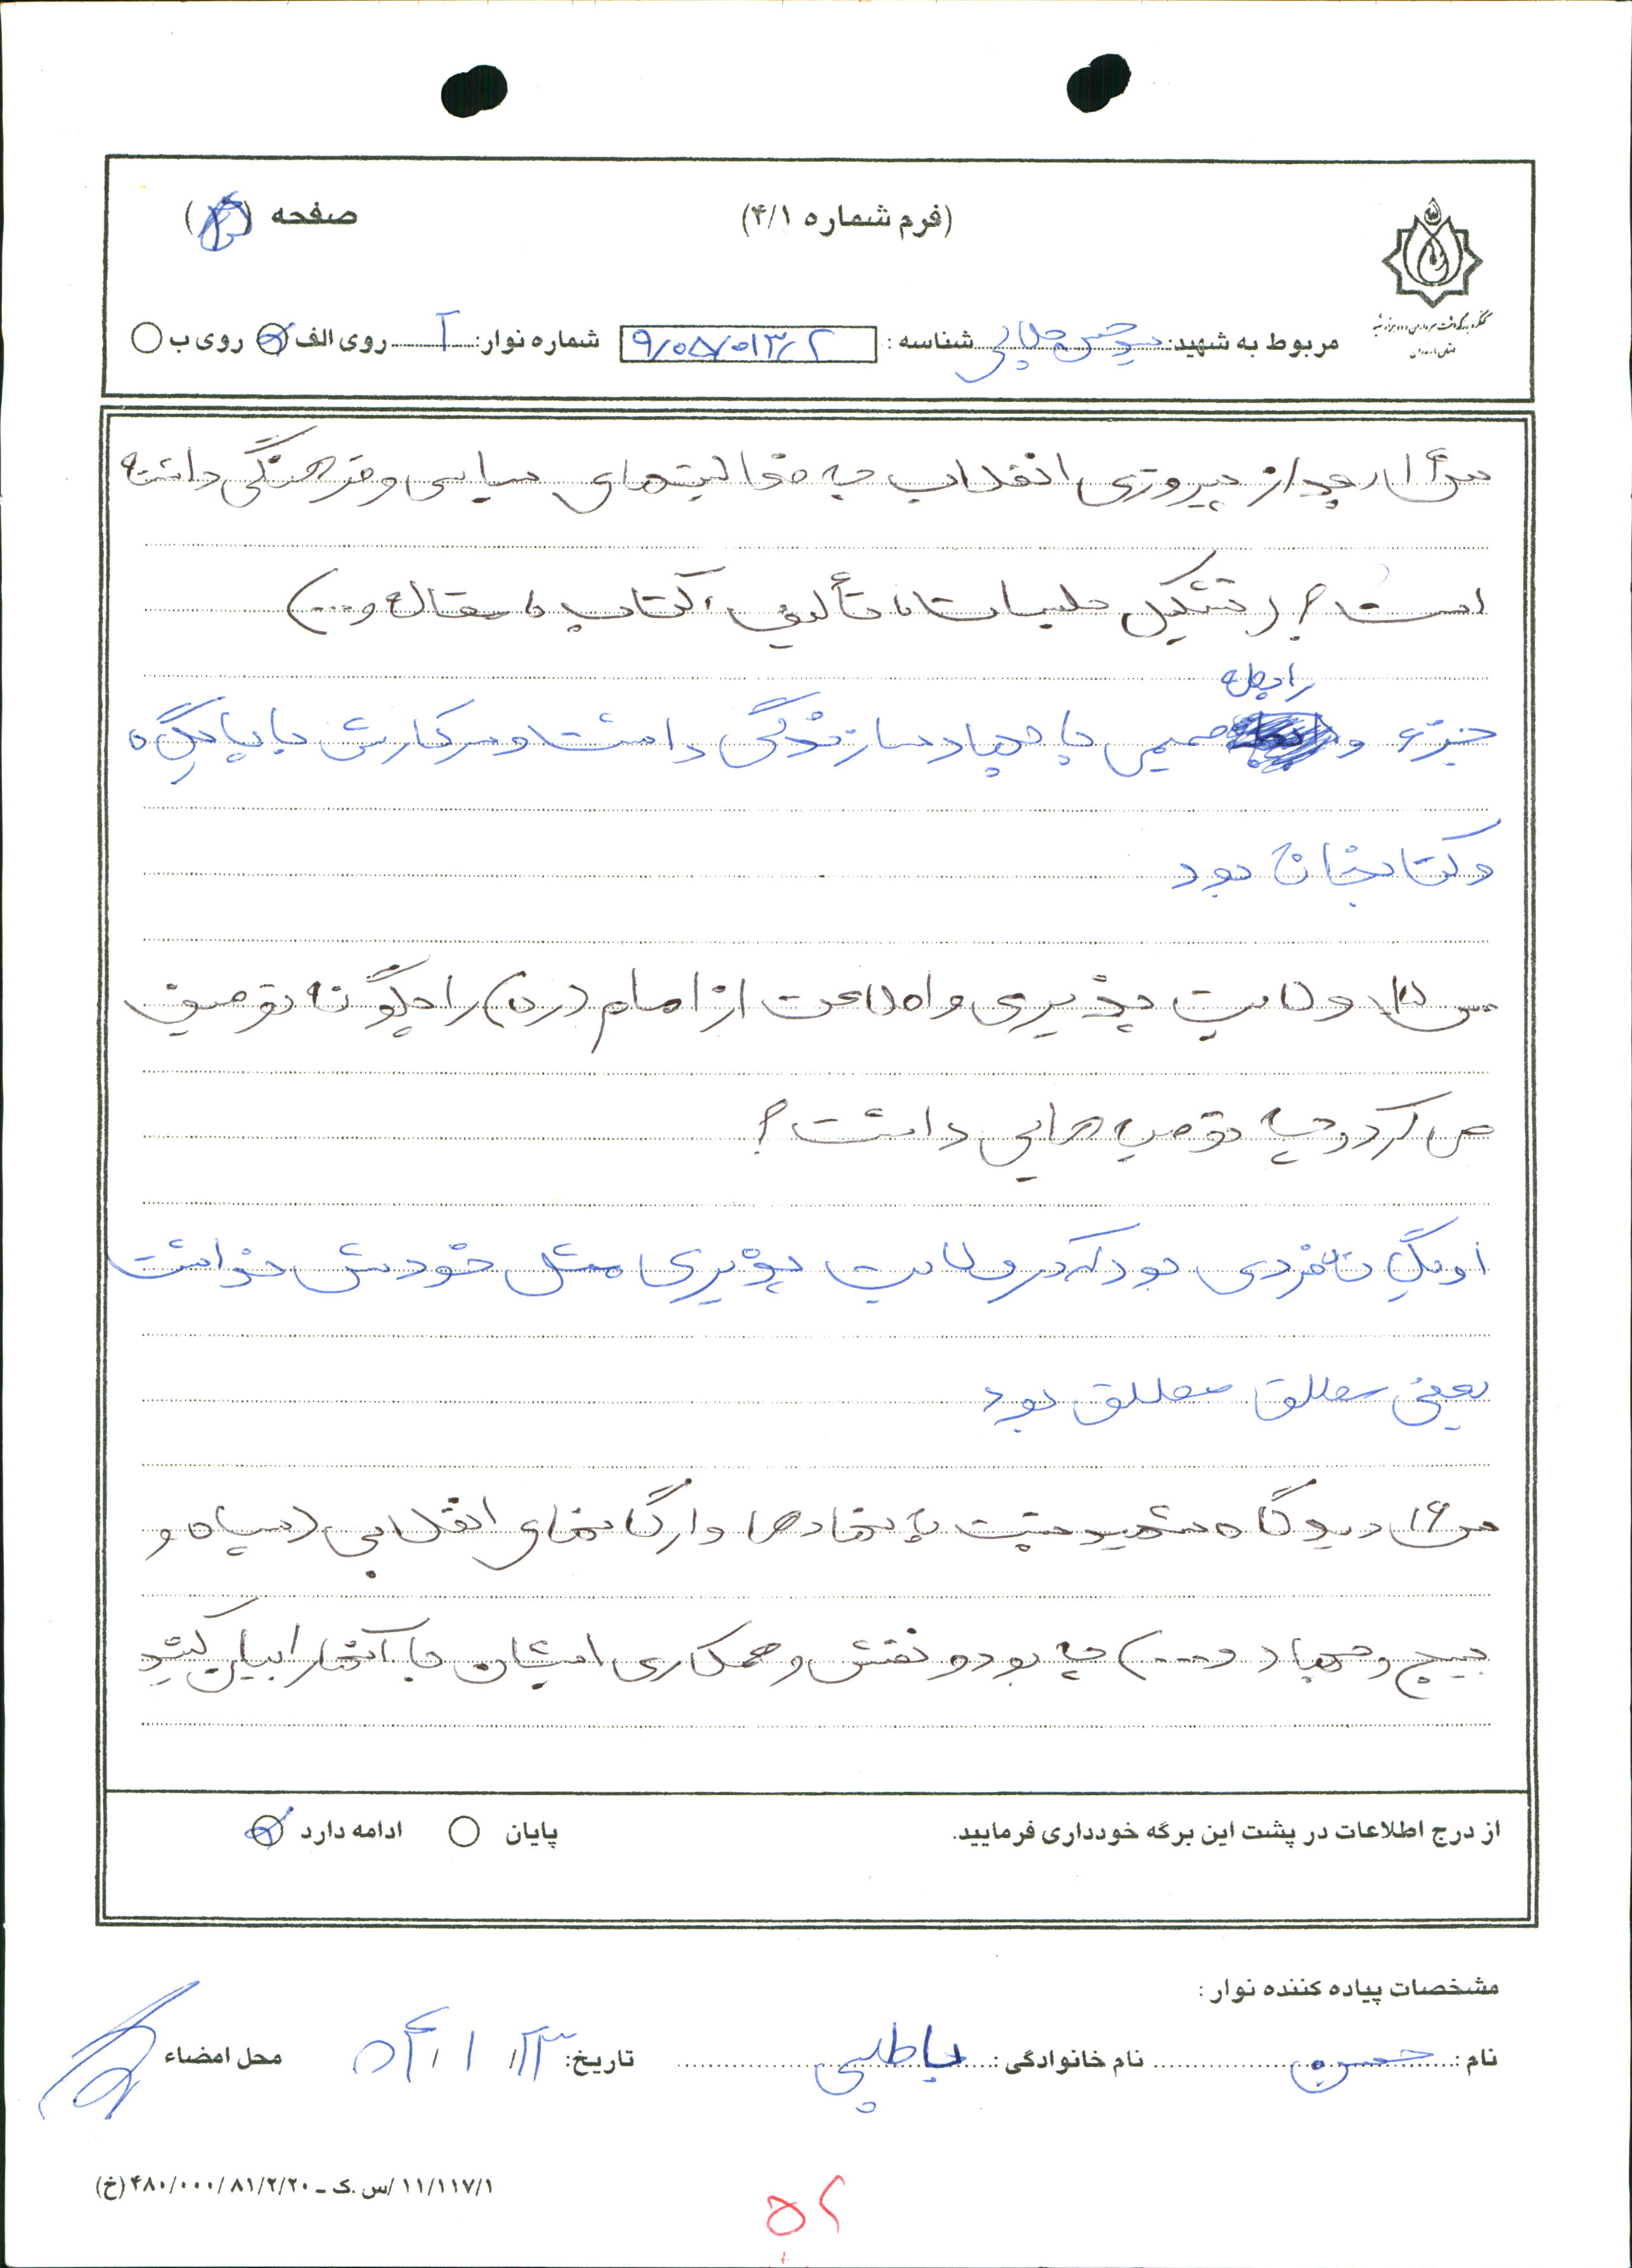 (فرم شماره ۴/۱)
صفحه ( )
مربوط به شهید: شناسه: ۹/۰۵۷/۰۱۳/۲ شماره نوار: ۲ روی الف روی ب
بعد از پیروزی انقلاب چه فعالیتهای سیاسی و فرهنگی داشته
است؟ (تشکیل جلسات، تألیف، کتاب، مقاله و...)
رابطه
جزء و صمیمی با جهاد سازندگی داشت و سرکارش با پایگاه
و کتابخانه بود
س ۱۵ ولایت پذیری و اطاعت از امام (ره) را چگونه توصیف
می کرد و چه توصیه هایی داشت؟
او یگانه فردی بود که در ولایت پذیری مثل خودش نداشت
یعنی مطلق مطلق بود
س ۱۶ دیدگاه شهید نسبت به نهادها و ارگانهای انقلابی (سپاه و
بسیج و جهاد و...) چه بود و نقش و همکاری ایشان با آنها را بیان کنید
از درج اطلاعات در پشت این برگه خودداری فرمایید.
پایان ادامه دارد
مشخصات پیاده کننده نوار:
نام: حسن نام خانوادگی: تاریخ: محل امضاء
۱۱/۱۱۷/۱ /س.ک ـ ۴۸۰/۰۰۰/۸۱/۲/۲۰ (خ)
۵۲